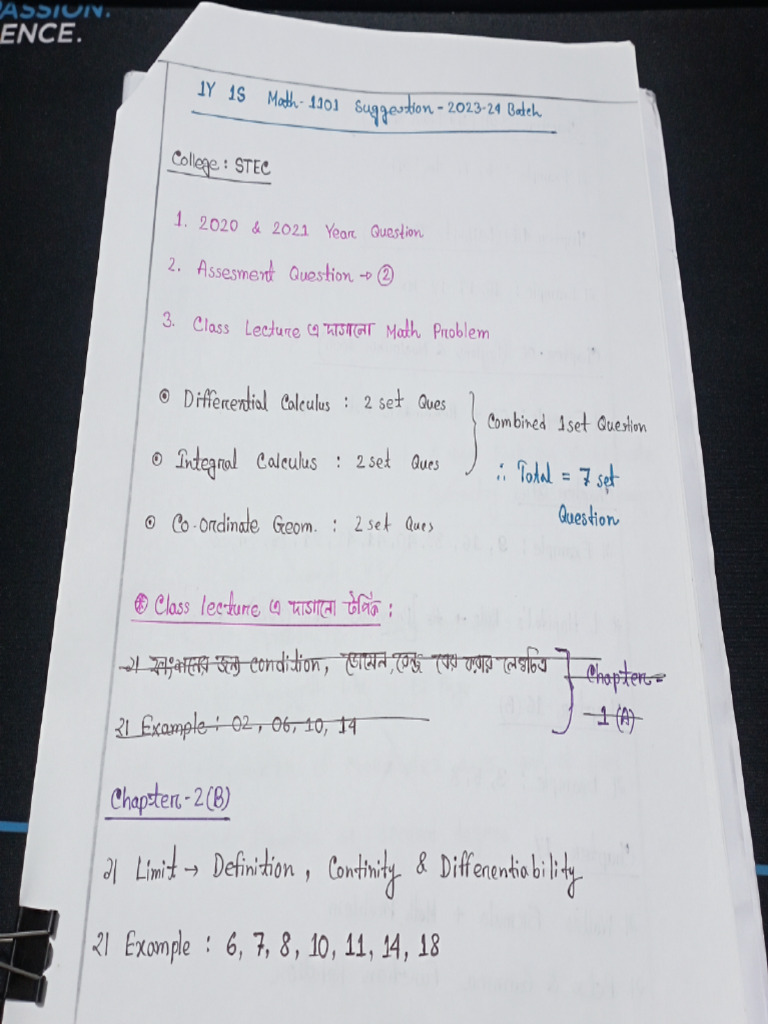 ASSION.
ENCE.
1Y 1S Math-1101 Suggestion - 2023-24 Batch
College : STEC
1. 2020 & 2021 Year Question
2. Assesment Question → ②
3. Class Lecture এ দাগানো Math Problem
Differential Calculus : 2 set Ques
Combined 1set Question
Integral Calculus : 2 set Ques
∴ Total = 7 set
Question
Co-ordinate Geom. : 2 set Ques
Class lecture এ দাগানো টপিক :
১। ফাংশনের জন্য condition, ডোমেন, রেঞ্জ বের করার লেখচিত্র
Chapter =
1 (A)
২। Example : 02, 06, 10, 14
Chapter-2(B)
১। Limit → Definition, Continity & Differentiability
২। Example : 6, 7, 8, 10, 11, 14, 18